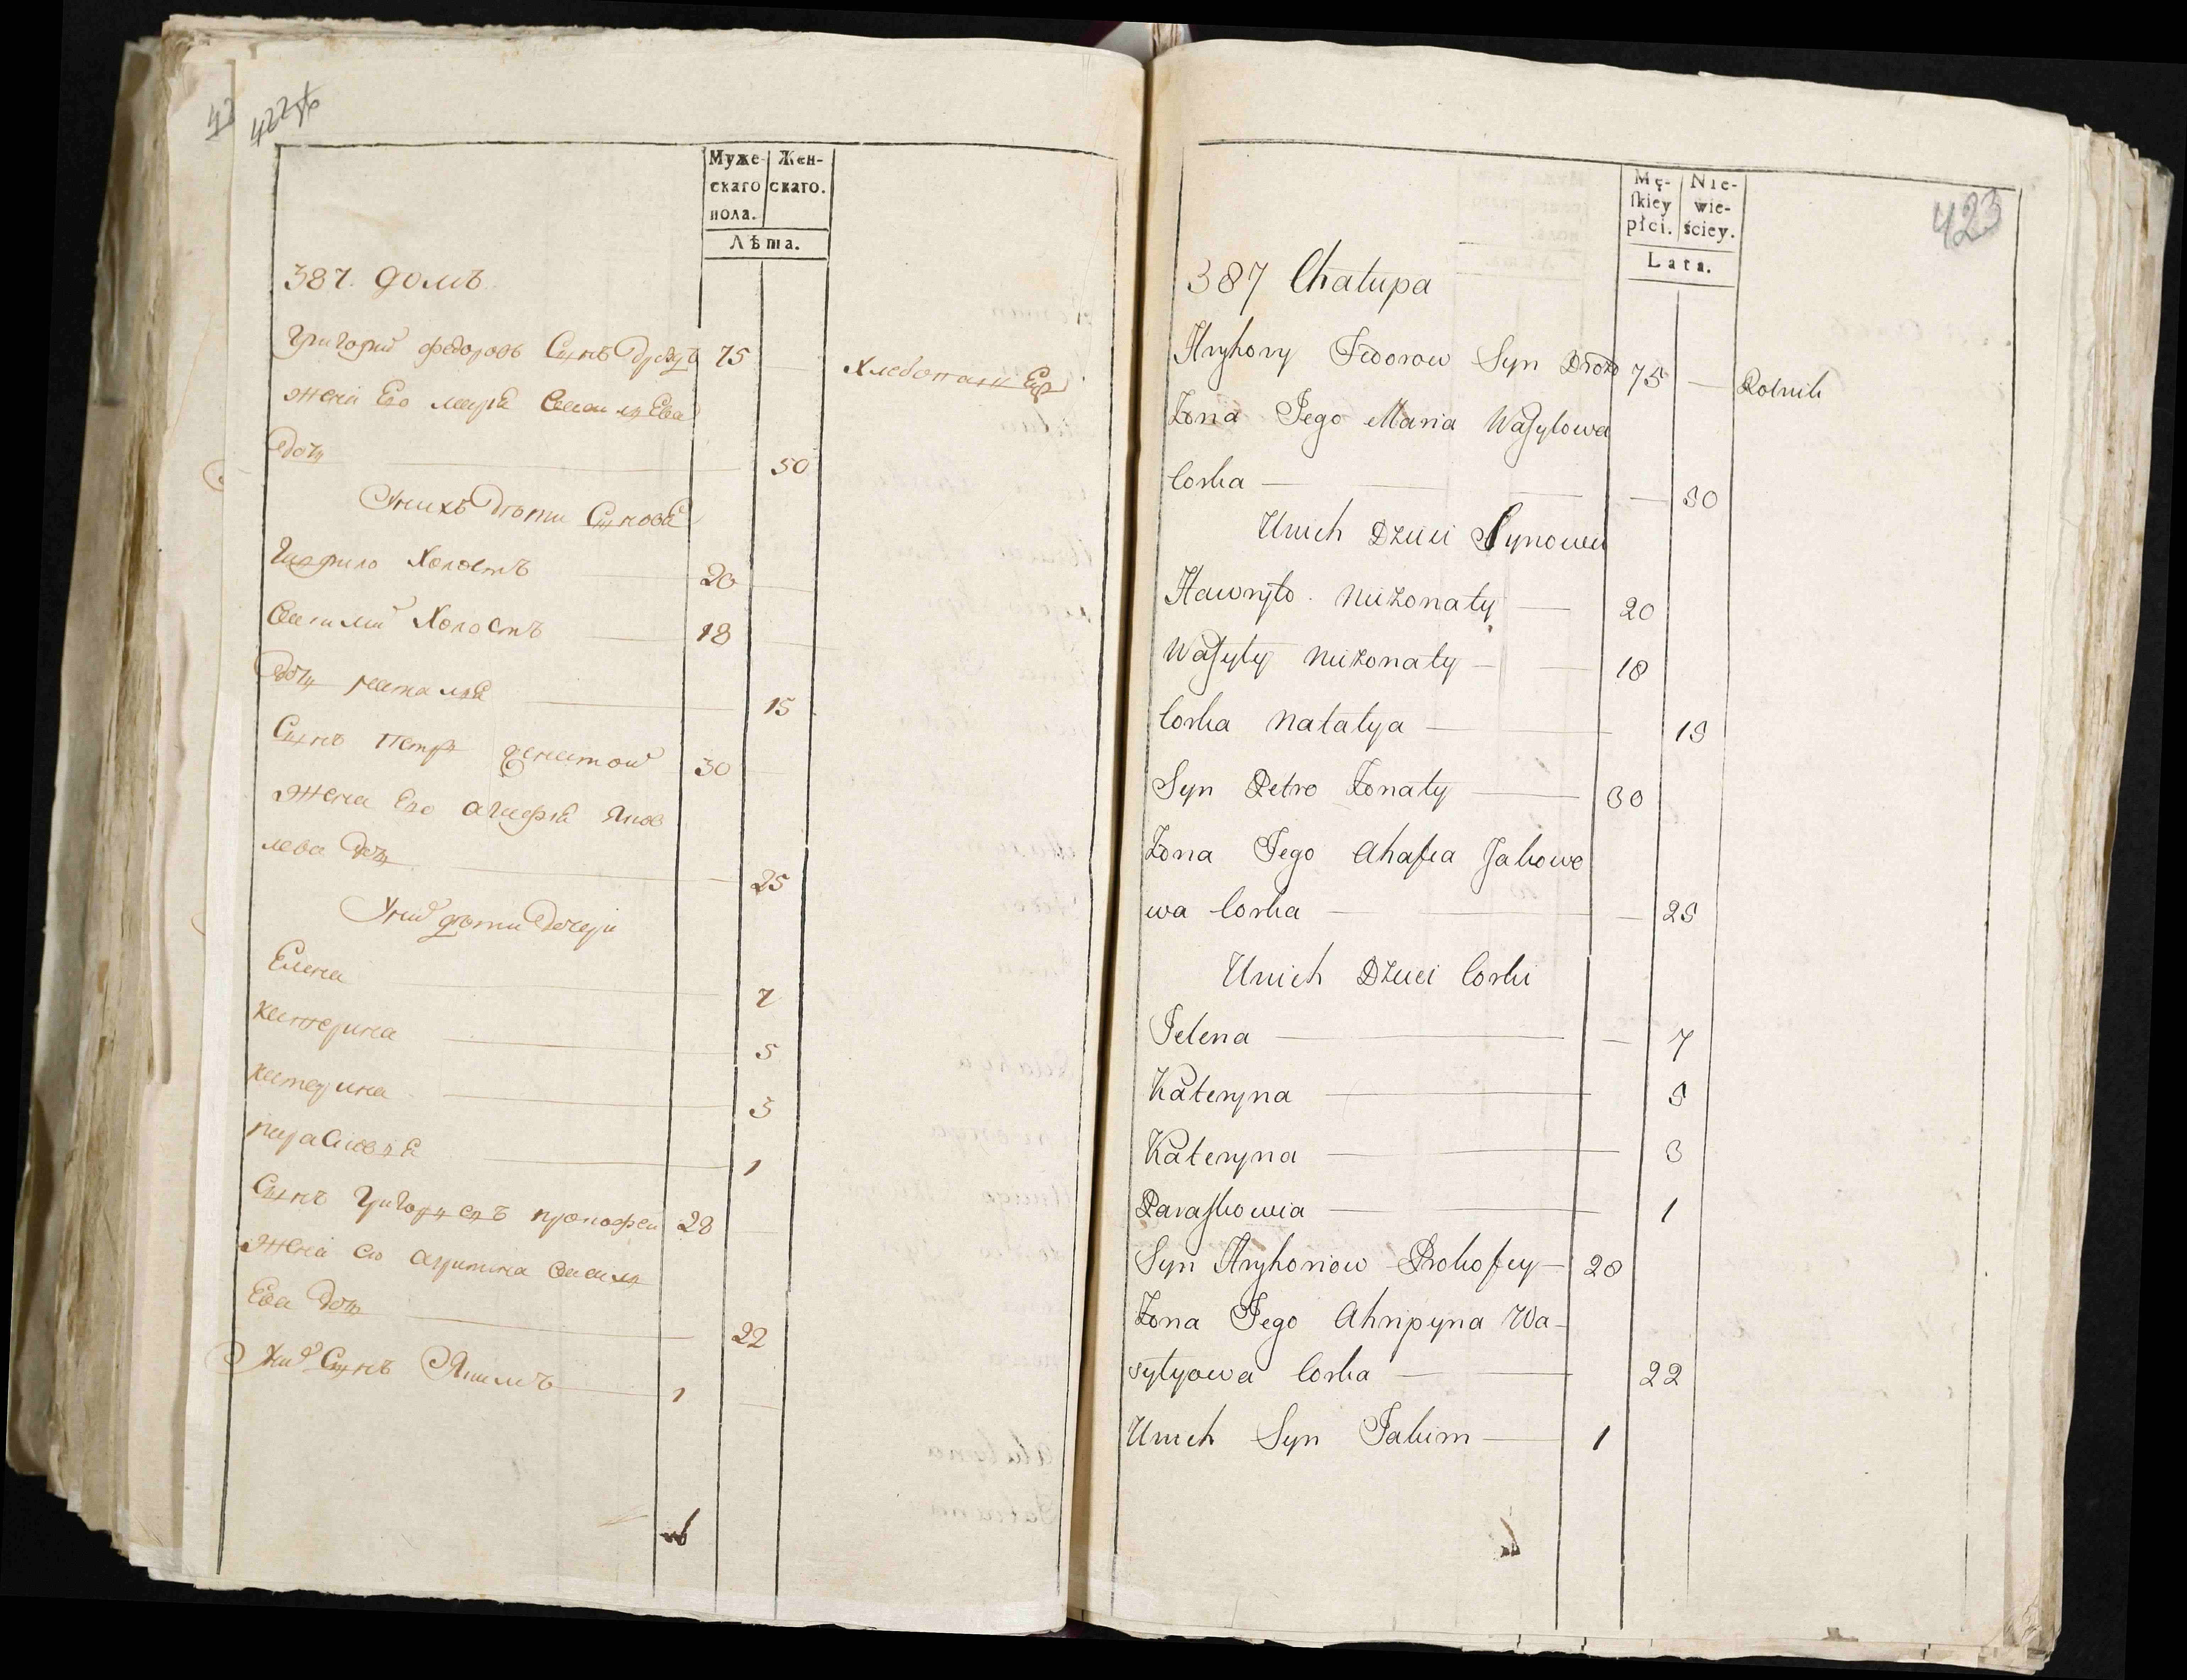 422 об
Муже- Жен-
скаго скаго.
пола.
Лѣта.
387. домъ
Григорий федоровъ Сынъ Дроздъ 75
Хлебопашецъ
жена Его марія Василяева
дочь 50
Унихъ дѣти Сынове
Гаврило Холостъ 20
Василий Холостъ 18
дочь наталья 15
Сынъ Петръ женатой 30
жена Его агафія Яков
лева дочь 25
Уний дѣти дочери
Елена 7
катерина 5
катерина 3
параскевія 1
Сынъ Григорьевъ прокофей 28
жена его агрипина Василь
Ева дочь 22
Уний Сынъ Якимъ 1
423
Mę- Nie-
skiey wie-
płci. ściey.
Lata.
387 Chałupa
Hryhory Fedorow Syn Drozd 75 Rolnik
Żona Jego Maria Wasylowa
Corka 50
Unich Dzieci Synowie
Hawryło Nieżonaty 20
Wasyly Nieżonaty 18
Corka Natalya 15
Syn Petro Żonaty 30
Żona Jego Ahafia Jakowo
wa Corka 25
Unich Dzieci Corki
Jelena 7
Kateryna 5
Kateryna 3
Paraskowia 1
Syn Hryhoriow Prokofey 28
Żona Jego Ahripyna Wa-
sylyowa Corka 22
Unich Syn Jakim 1